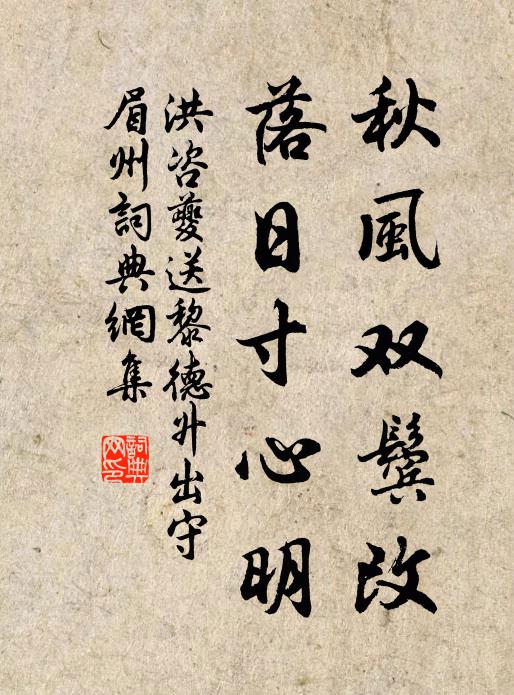 秋風双鬢改
落日寸心明
洪咨夔送黎德升出守
眉州詞典網集
詞典
網印